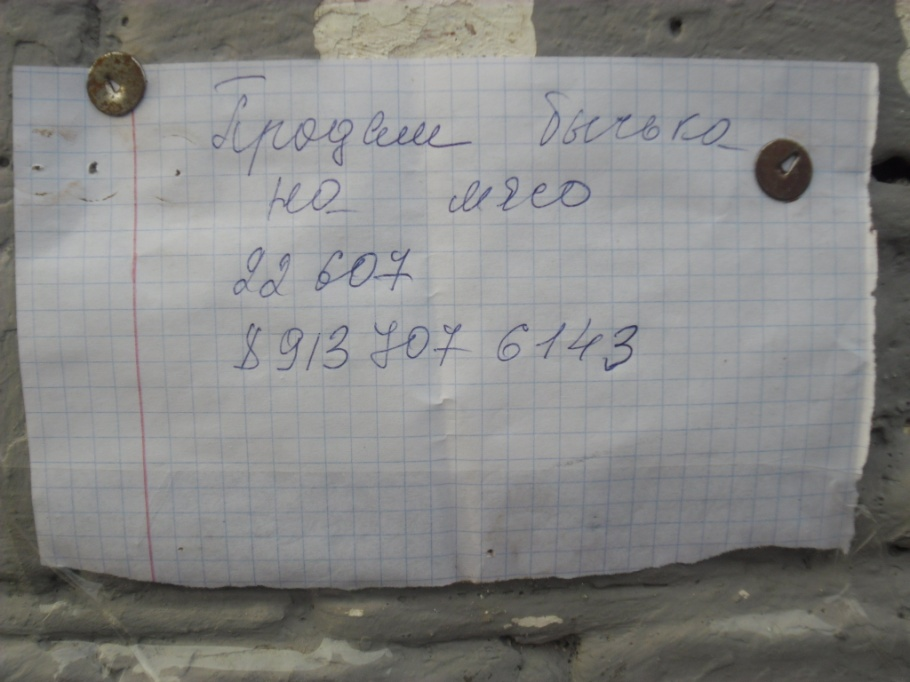 Продам бычька
на мясо
22 607
8 913 707 6143